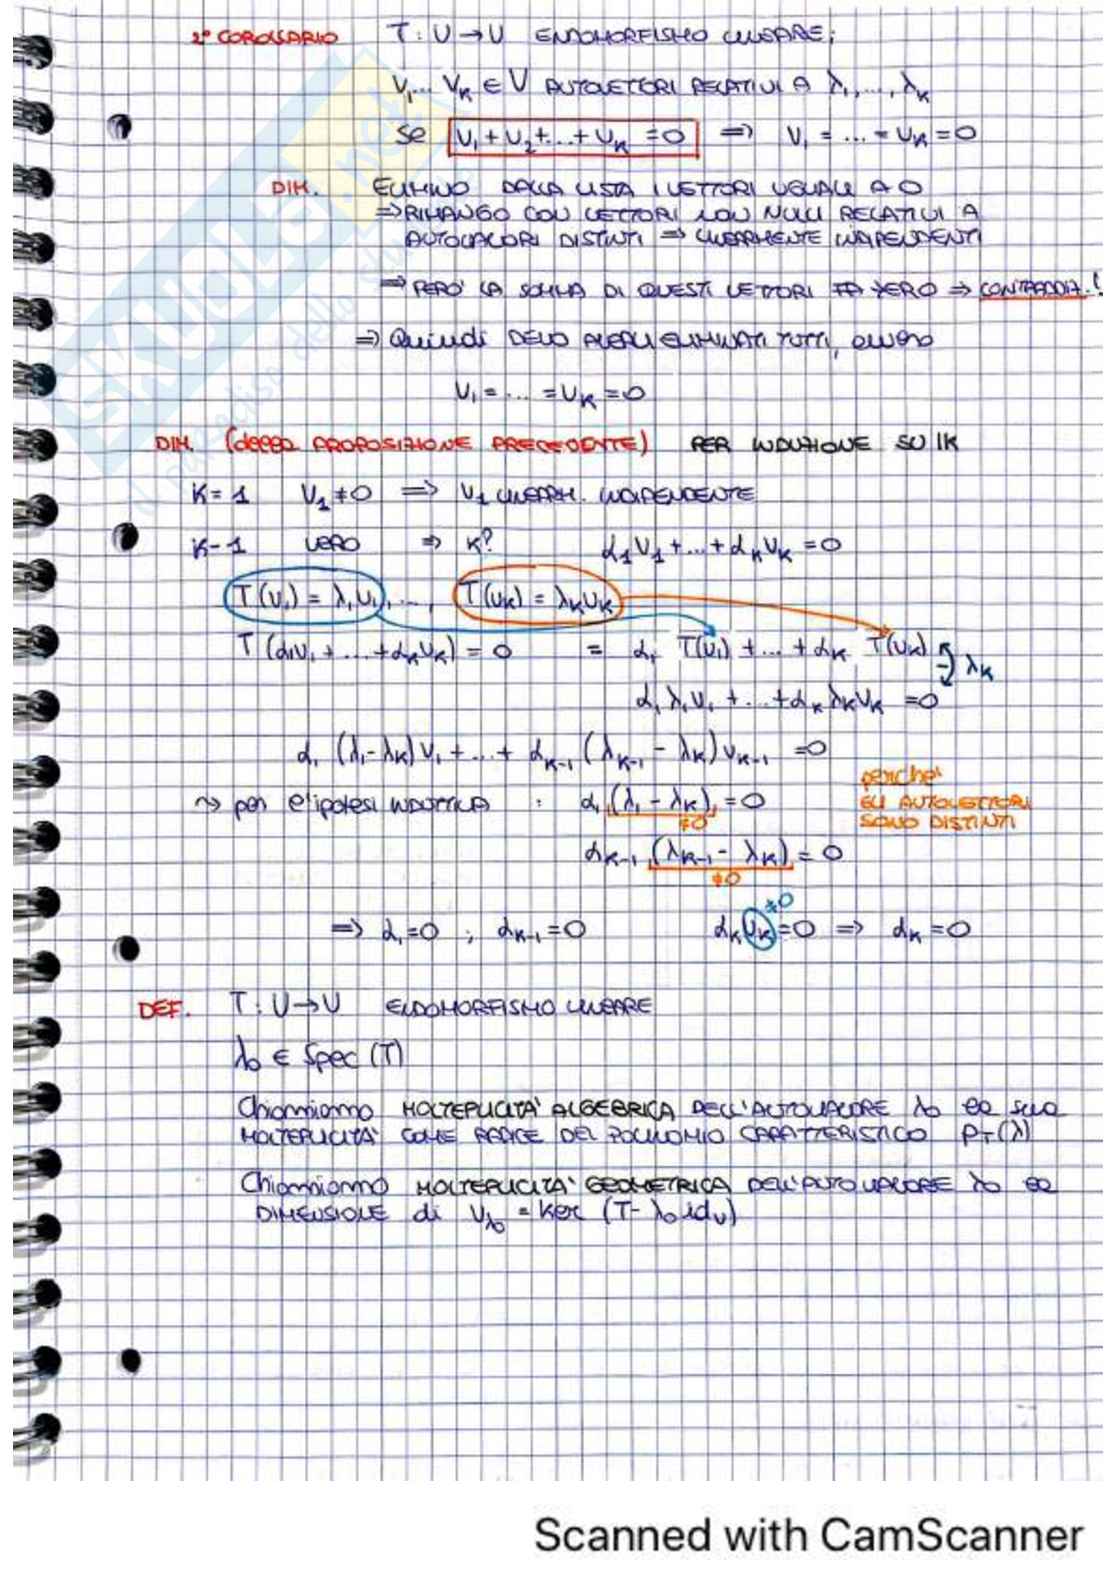 2° COROLLARIO T : V → V ENDOMORFISMO LINEARE;
V₁... Vₖ ∈ V AUTOVETTORI RELATIVI A λ₁, ..., λₖ
se V₁ + V₂ + ... + Vₖ = 0 ⇒ V₁ = ... = Vₖ = 0
DIM. ELIMINO DALLA LISTA I VETTORI UGUALI A 0
⇒ RIMANGO CON VETTORI NON NULLI RELATIVI A
AUTOVALORI DISTINTI ⇒ LINEARMENTE INDIPENDENTI
⇒ PERO' LA SOMMA DI QUESTI VETTORI FA ZERO ⇒ CONTRADDIZ.!
⇒ Quindi DEVO AVERLI ELIMINATI TUTTI, OVVERO
V₁ = ... = Vₖ = 0
DIM. (della PROPOSIZIONE PRECEDENTE) PER INDUZIONE SU K
K = 1 V₁ ≠ 0 ⇒ V₁ LINEARM. INDIPENDENTE
K-1 VERO ⇒ K? α₁V₁ + ... + αₖVₖ = 0
T(V₁) = λ₁V₁, ..., T(Vₖ) = λₖVₖ
T(α₁V₁ + ... + αₖVₖ) = 0 = α₁ T(V₁) + ... + αₖ T(Vₖ)
λₖ
α₁λ₁V₁ + ... + αₖλₖVₖ = 0
α₁(λ₁-λₖ)V₁ + ... + αₖ₋₁(λₖ₋₁ - λₖ)Vₖ₋₁ = 0
⇝ per l'ipotesi INDUTTIVA : α₁(λ₁ - λₖ) = 0
≠0
perche'
GLI AUTOVETTORI
SONO DISTINTI
αₖ₋₁(λₖ₋₁ - λₖ) = 0
≠0
⇒ α₁=0 ; αₖ₋₁=0 αₖVₖ=0 ⇒ αₖ=0
≠0
DEF. T : V → V ENDOMORFISMO LINEARE
λ₀ ∈ Spec (T)
Chiamiamo MOLTEPLICITA' ALGEBRICA DELL'AUTOVALORE λ₀ la sua
MOLTEPLICITA' COME RADICE DEL POLINOMIO CARATTERISTICO P_T(λ)
Chiamiamo MOLTEPLICITA' GEOMETRICA DELL'AUTOVALORE λ₀ la
DIMENSIONE di V_λ₀ = Ker (T- λ₀ id_V)
SKUOLA.net
il paradiso dello studente
Scanned with CamScanner